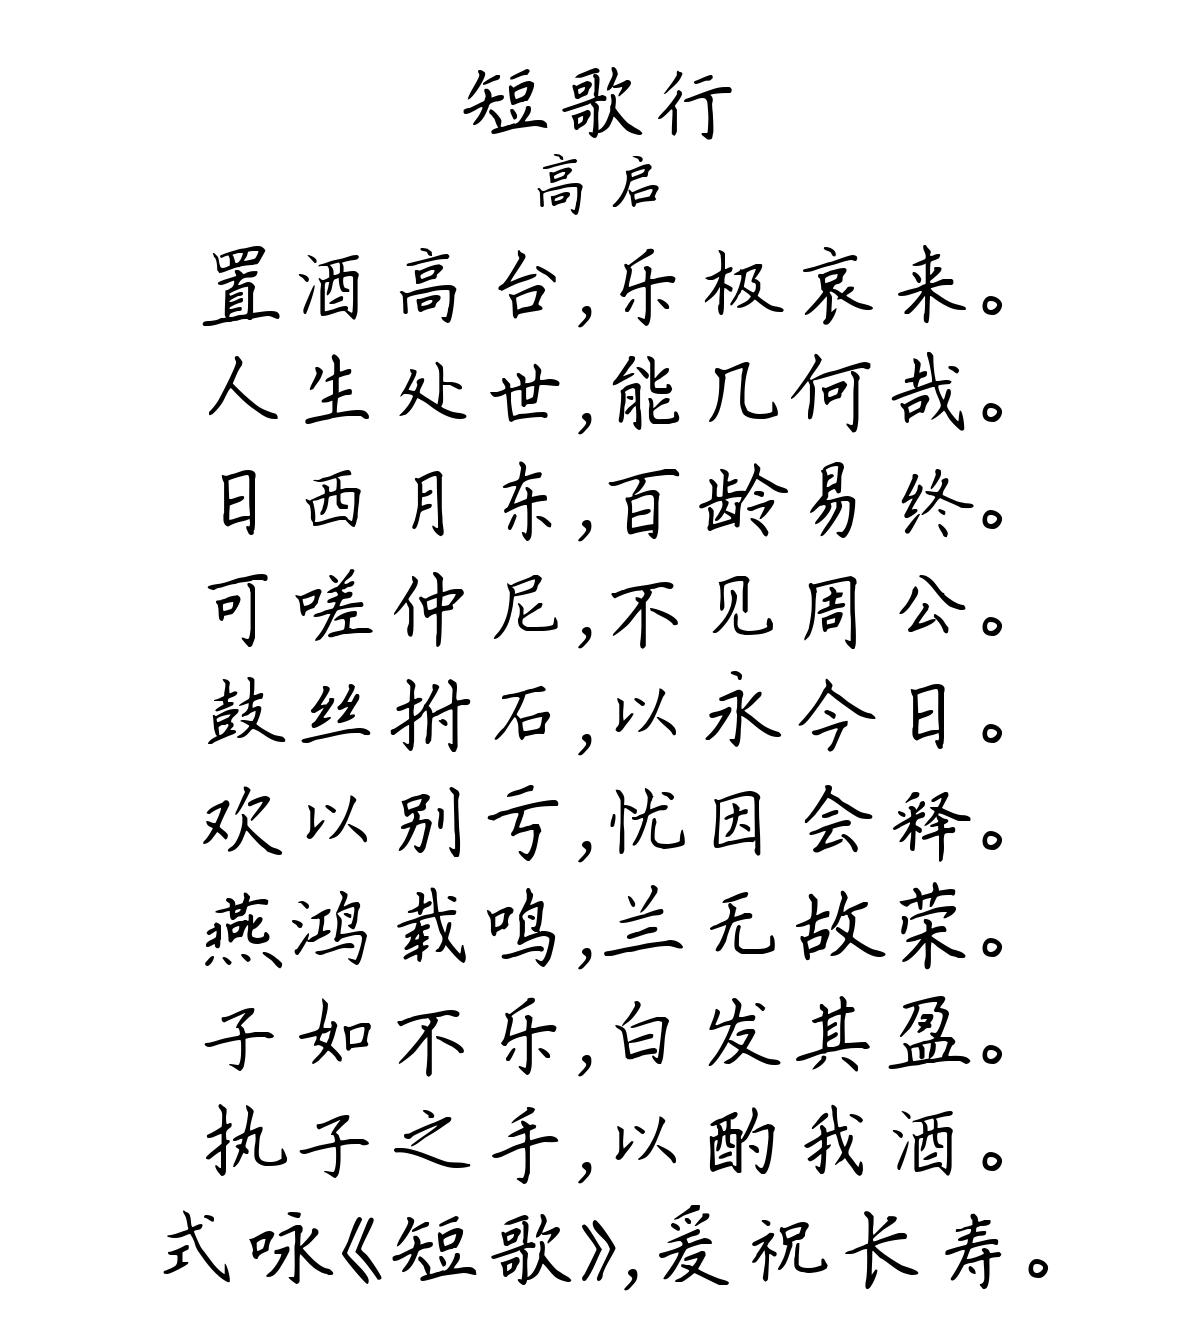 短歌行
高启
置酒高台,乐极哀来。
人生处世,能几何哉。
日西月东,百龄易终。
可嗟仲尼,不见周公。
鼓丝拊石,以永今日。
欢以别亏,忧因会释。
燕鸿载鸣,兰无故荣。
子如不乐,白发其盈。
执子之手,以酌我酒。
式咏《短歌》,爰祝长寿。